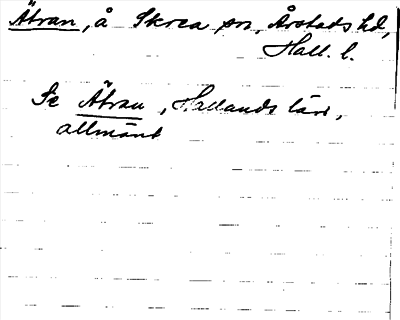 Ätran, å Skrea sn, Årstads hd,
Hall. l.
Se Ätran, Hallands län,
allmänt